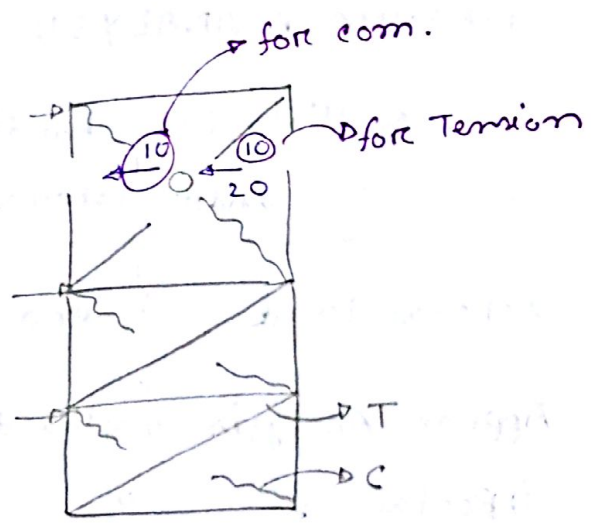 for com.
10
10
for Tension
20
T
C